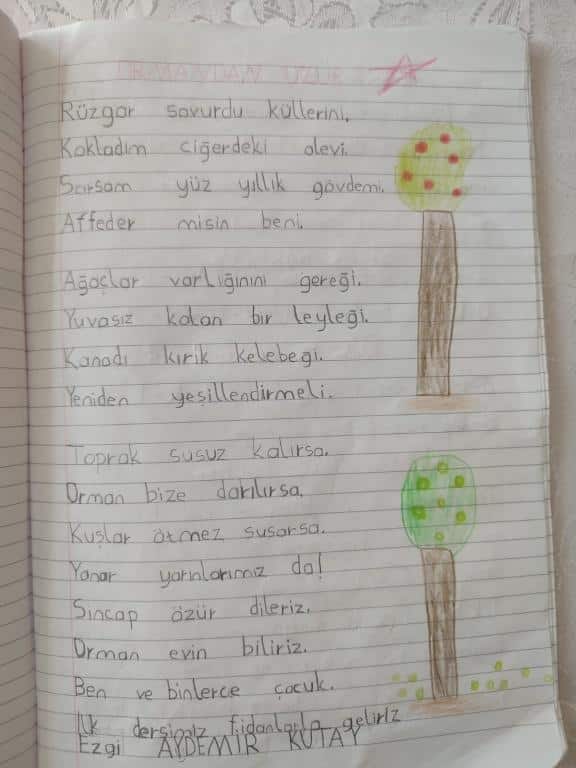 ORMANDAN ÖZÜR
Rüzgar savurdu küllerini,
Kokladım ciğerdeki alevi.
Sarsam yüz yıllık gövdemi,
Affeder misin beni.
Ağaçlar varlığının gereği.
Yuvasız kalan bir leyleği.
Kanadı kırık kelebegi.
Yeniden yeşillendirmeli.
Toprak susuz kalırsa.
Orman bize darılırsa,
Kuşlar ötmez susarsa.
Yanar yarınlarımız da!
Sincap özür dileriz.
Orman evin biliriz.
Ben ve binlerce çocuk.
İlk dersimiz fidanlarla geliriz
Ezgi AYDEMİR KUTAY